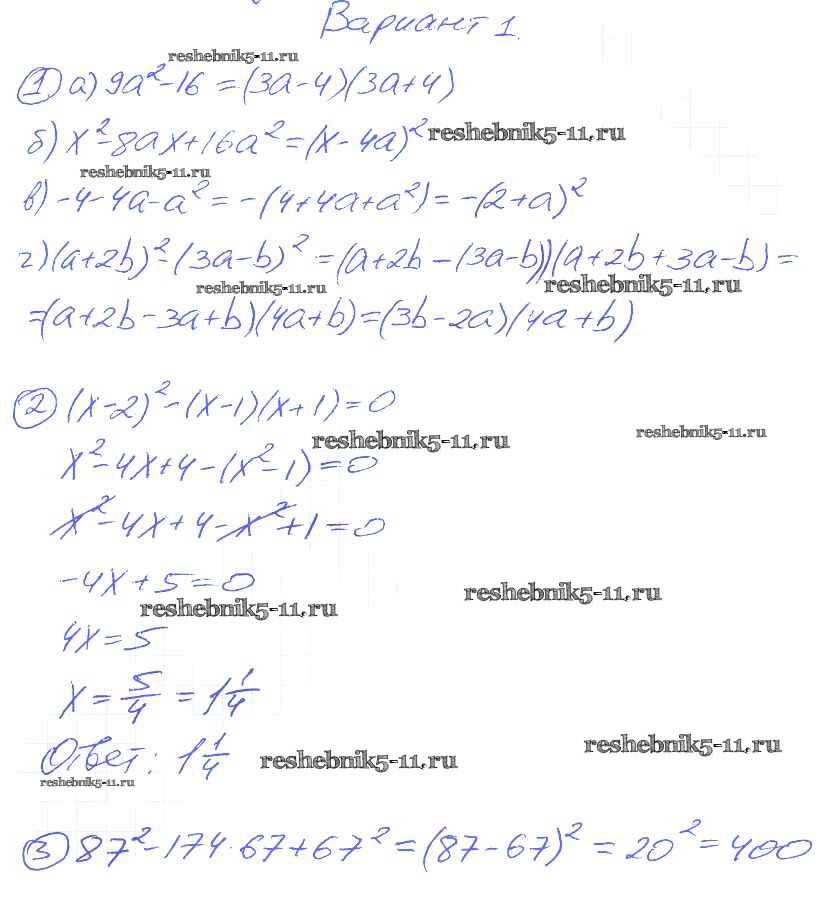 Вариант 1.
reshebnik5-11.ru
① а) 9a² - 16 = (3a - 4)(3a + 4)
б) x² - 8ax + 16a² = (x - 4a)² reshebnik5-11.ru
reshebnik5-11.ru
в) -4 - 4a - a² = -(4 + 4a + a²) = -(2 + a)²
г) (a + 2b)² - (3a - b)² = (a + 2b - (3a - b))(a + 2b + 3a - b) =
reshebnik5-11.ru reshebnik5-11.ru
= (a + 2b - 3a + b)(4a + b) = (3b - 2a)(4a + b)
② (x - 2)² - (x - 1)(x + 1) = 0
reshebnik5-11.ru reshebnik5-11.ru
x² - 4x + 4 - (x² - 1) = 0
x² - 4x + 4 - x² + 1 = 0
-4x + 5 = 0
reshebnik5-11.ru reshebnik5-11.ru
4x = 5
x = 5/4 = 1 1/4
Ответ: 1 1/4 reshebnik5-11.ru reshebnik5-11.ru
reshebnik5-11.ru
③ 87² - 174 · 67 + 67² = (87 - 67)² = 20² = 400